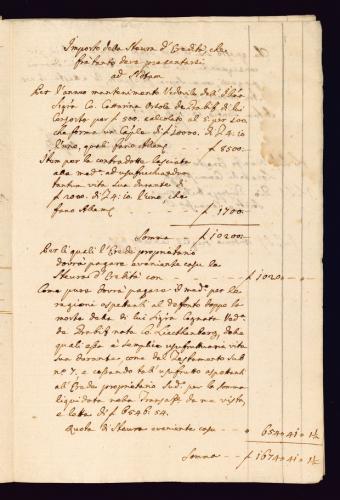 Importo della Steura d'Eredità, che
frà tanto deve presentarsi
ad Notam
Per l'anno mantenimento Vedovile dell'Illma
Sigra Co. Cattarina di lui
Consorte per f 500. calcolato al 5: per 100.
che forma un Caple di f 10000. di X 4: 10.
l'uno, quali fanno Allemi - f 8500.-
Item per la contradotte lasciata
alla mada ad usufruendum
tantum vita sua durante di
f 2000. di X 4: 10. l'uno, che
fano Allemi - f 1700.
Somma f 10200.-
Per li quali l'Erede proprietario
dovrà pagare eveniente casu la
Steura d'Eredità con - f 1020.
Come pure dovrà pagare il medo per le
ragioni aspettanti al defonto doppo la
morte della di lui Sigra Cognata Veda
de nata Co. Liechtenberg, della
quali essa è semplice usufruttuaria vita
sua durante, come dal Testamento sub
No 7. e cessando tal usufrutto aspettanti
all'Erede proprietario Sudo per la somma
liquidata nella da me vista,
e letta di f 6546: 54.
Quota di Steura eveniente casu - 654 " 41 " 1½
Somma - f 1674 " 41 " 1½